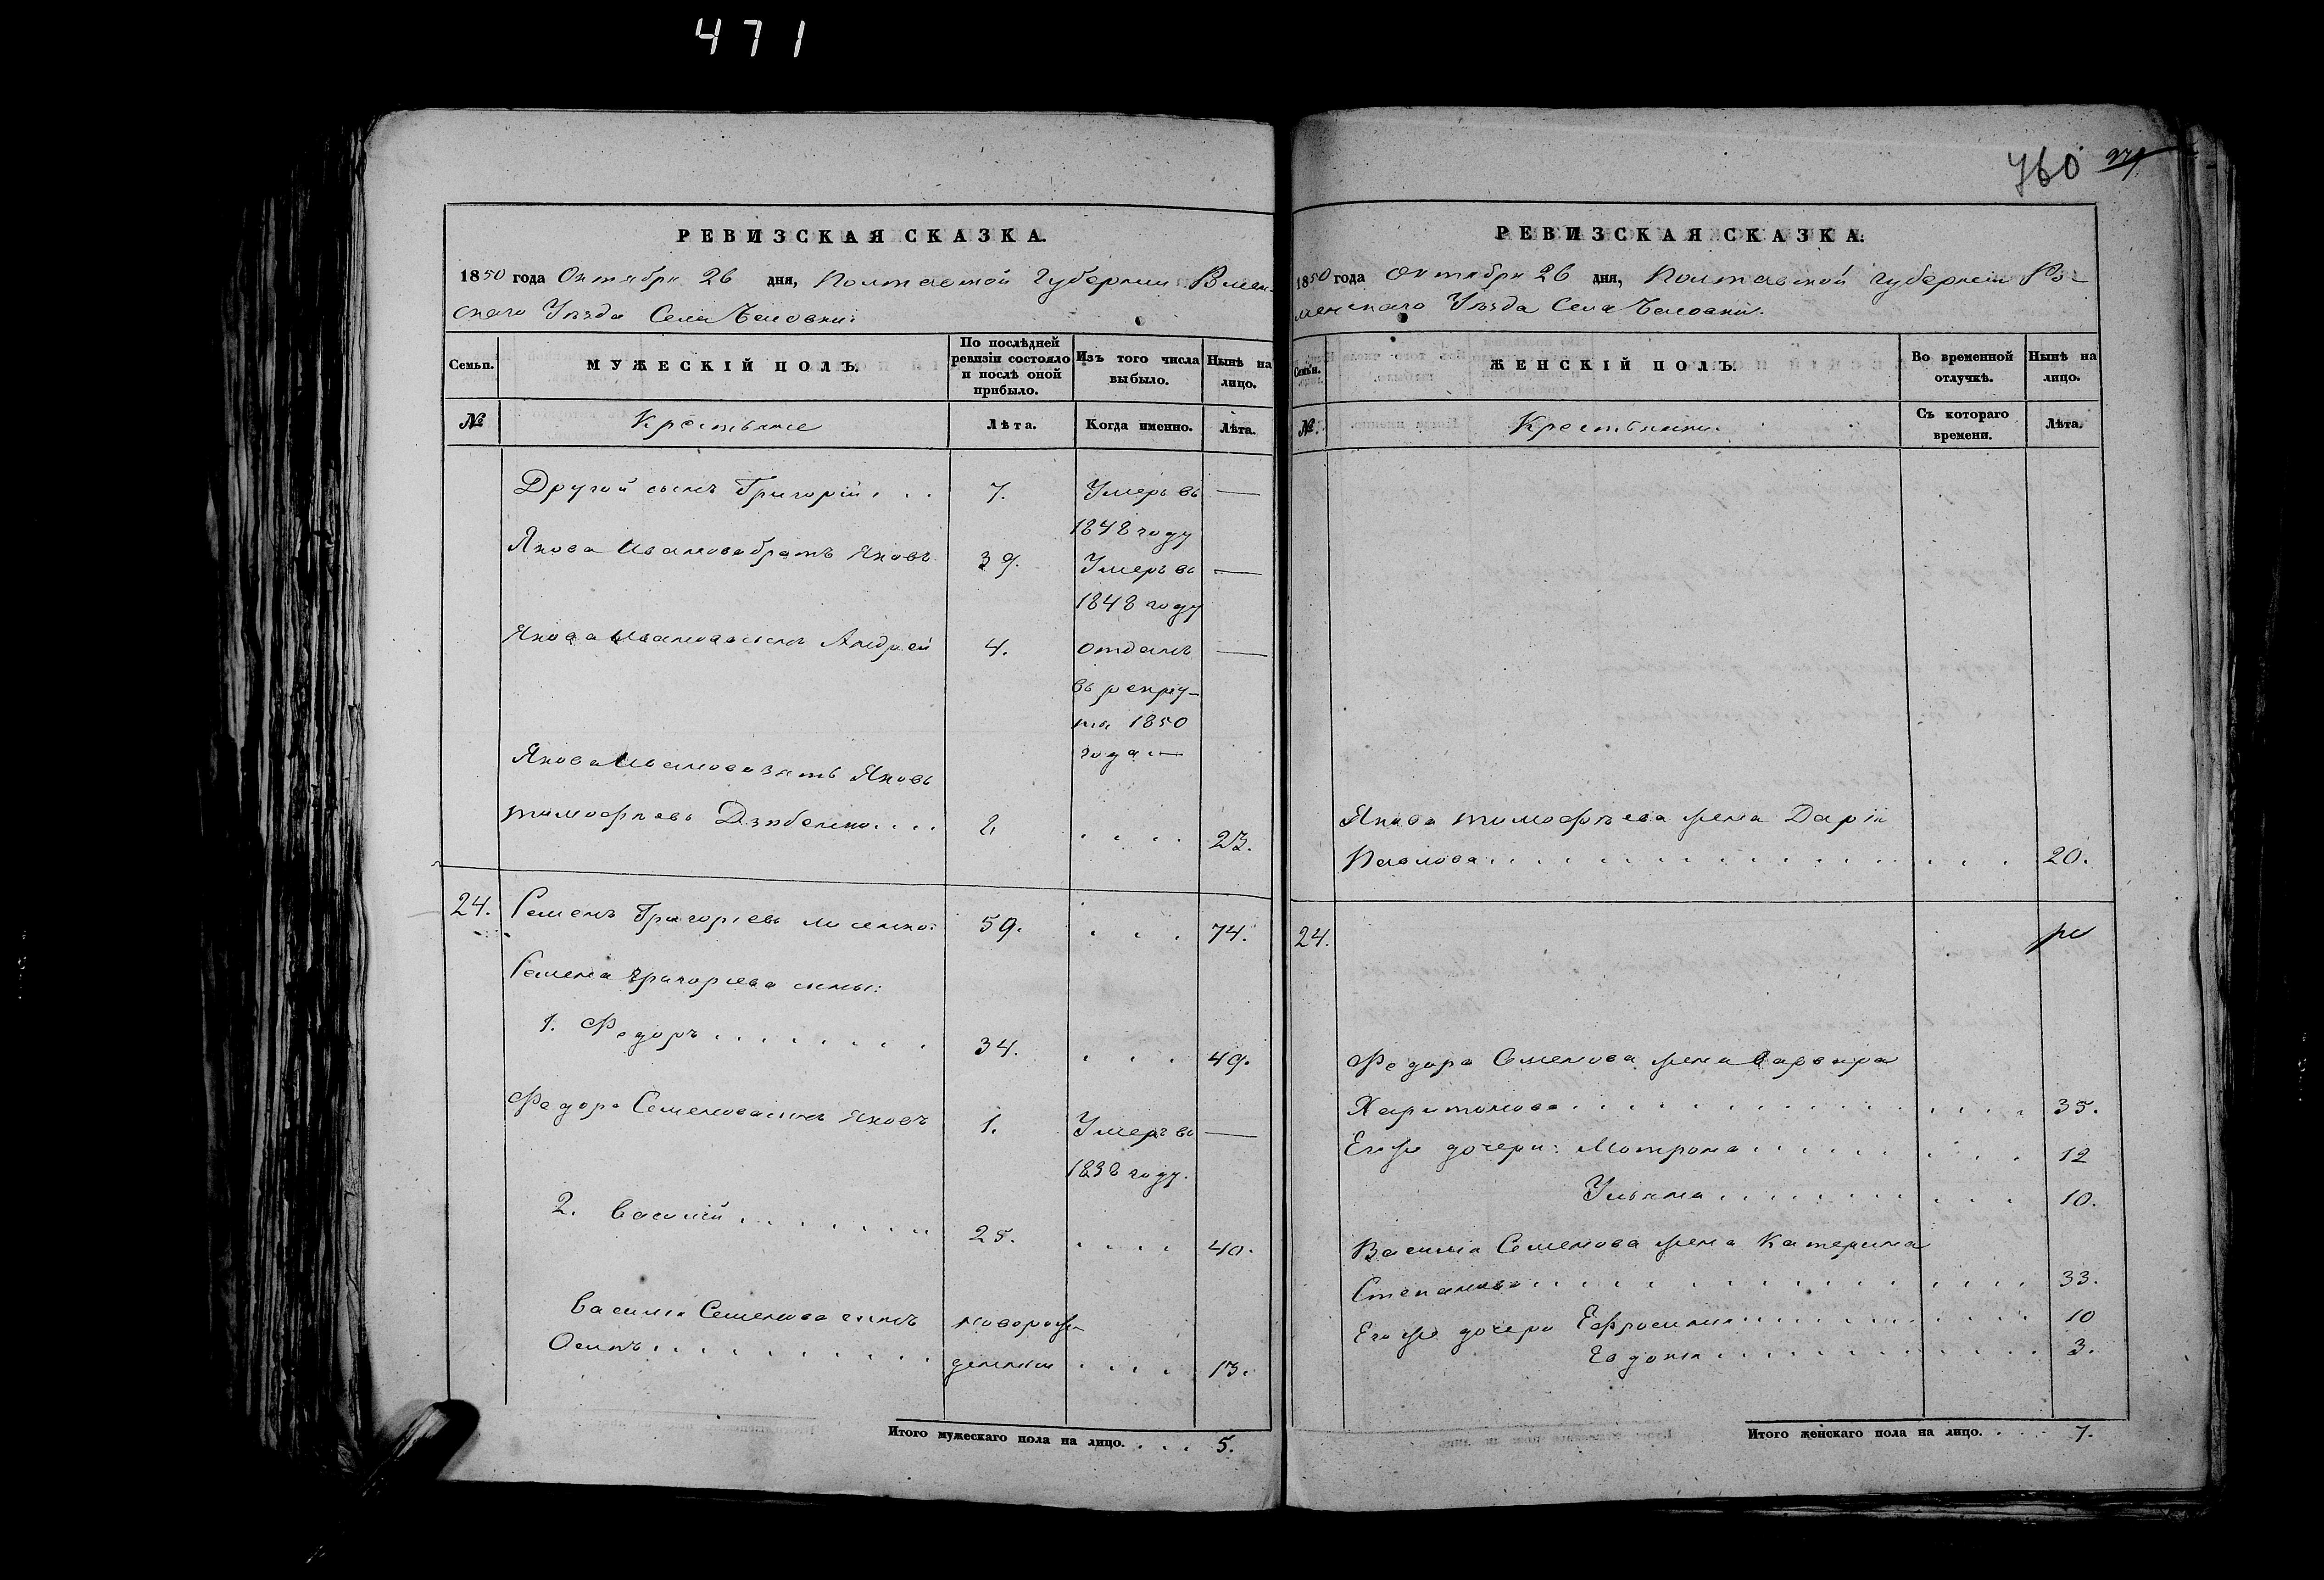 471
РЕВИЗСКАЯ СКАЗКА.
1850 года Октября 26 дня, Полтавской Губернии Ромен-
скаго Уѣзда Села
Семьи.
МУЖЕСКІЙ ПОЛЪ.
По послѣдней ревизіи состояло и послѣ оной прибыло.
Изъ того числа выбыло.
Нынѣ на лицо.
№
Крестьяне
Лѣта.
Когда именно.
Лѣта.
Другой сынъ Григорій . . . 7. Умеръ въ —
1848 году
Якова Иванова братъ Яковъ 39. Умеръ въ —
1848 году
Якова Иванова сынъ Андрей 4. отданъ —
въ рекру-
ты 1850
года —
Якова Иванова зять Яковъ
тимофѣевъ . . . . 8 . . . . 23.
24. Семенъ Григорьевъ 59. . . . 74.
Семена григорьева сыны:
1. Федоръ . . . . . . . . 34. . . . 49.
Федора Семенова сынъ Яковъ 1. Умеръ въ —
1838 году.
2. василій . . . . . . . 25. . . . . 40.
василия Семенова сынъ новорож-
Осипъ . . . . . . . . . . денный . . . . 13.
Итого мужескаго пола на лицо. . . . 5.
760
РЕВИЗСКАЯ СКАЗКА.
1850 года октября 26 дня, Полтавской губернии Ро-
менскаго Уѣзда Села
Семьи.
ЖЕНСКІЙ ПОЛЪ.
Во временной отлучкѣ.
Нынѣ на лицо.
№.
Крестьянки.
Съ котораго времени.
Лѣта.
Якова тимофѣева жена Дарія
Павлова . . . . . . . . . . . . . . . . 20.
24.
Федора Семенова жена варвара
Харитонова . . . . . . . . . . . . . . 35.
Его же дочери: Мотрона . . . . . . . . . 12
Ульяна . . . . . . . . . . 10.
Василия Семенова жена Катерина
Степанова . . . . . . . . . . . . . . 33.
Его же дочери Ефросиния . . . . . . . . . . 10
Евдокия . . . . . . . . . . . 3.
Итого женскаго пола на лицо. . . . . 7.